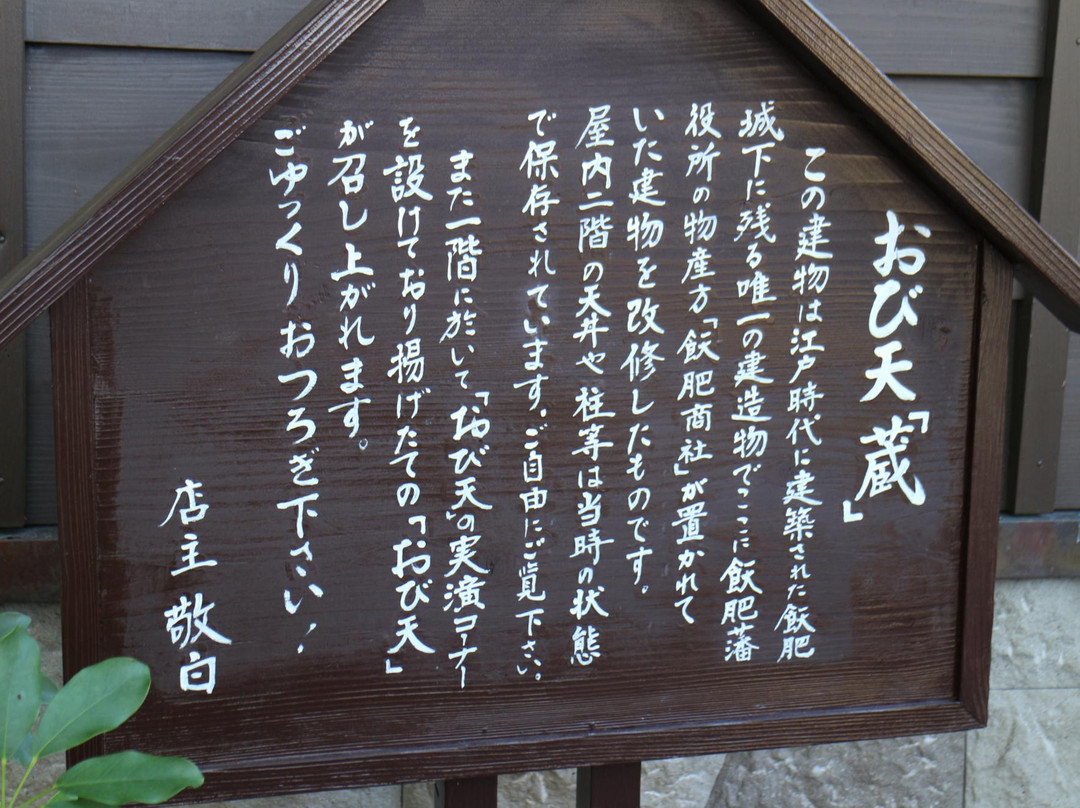 おび天「蔵」
この建物は江戸時代に建築された飫肥
城下に残る唯一の建造物でここに飫肥藩
役所の物産方「飫肥商社」が置かれて
いた建物を改修したものです。
屋内二階の天井や柱等は当時の状態
で保存されています。ご自由にご覧下さい。
また一階に於いて「おび天」の実演コーナー
を設けており揚げたての「おび天」
が召し上がれます。
ごゆっくりおつろぎ下さい!
店主 敬白